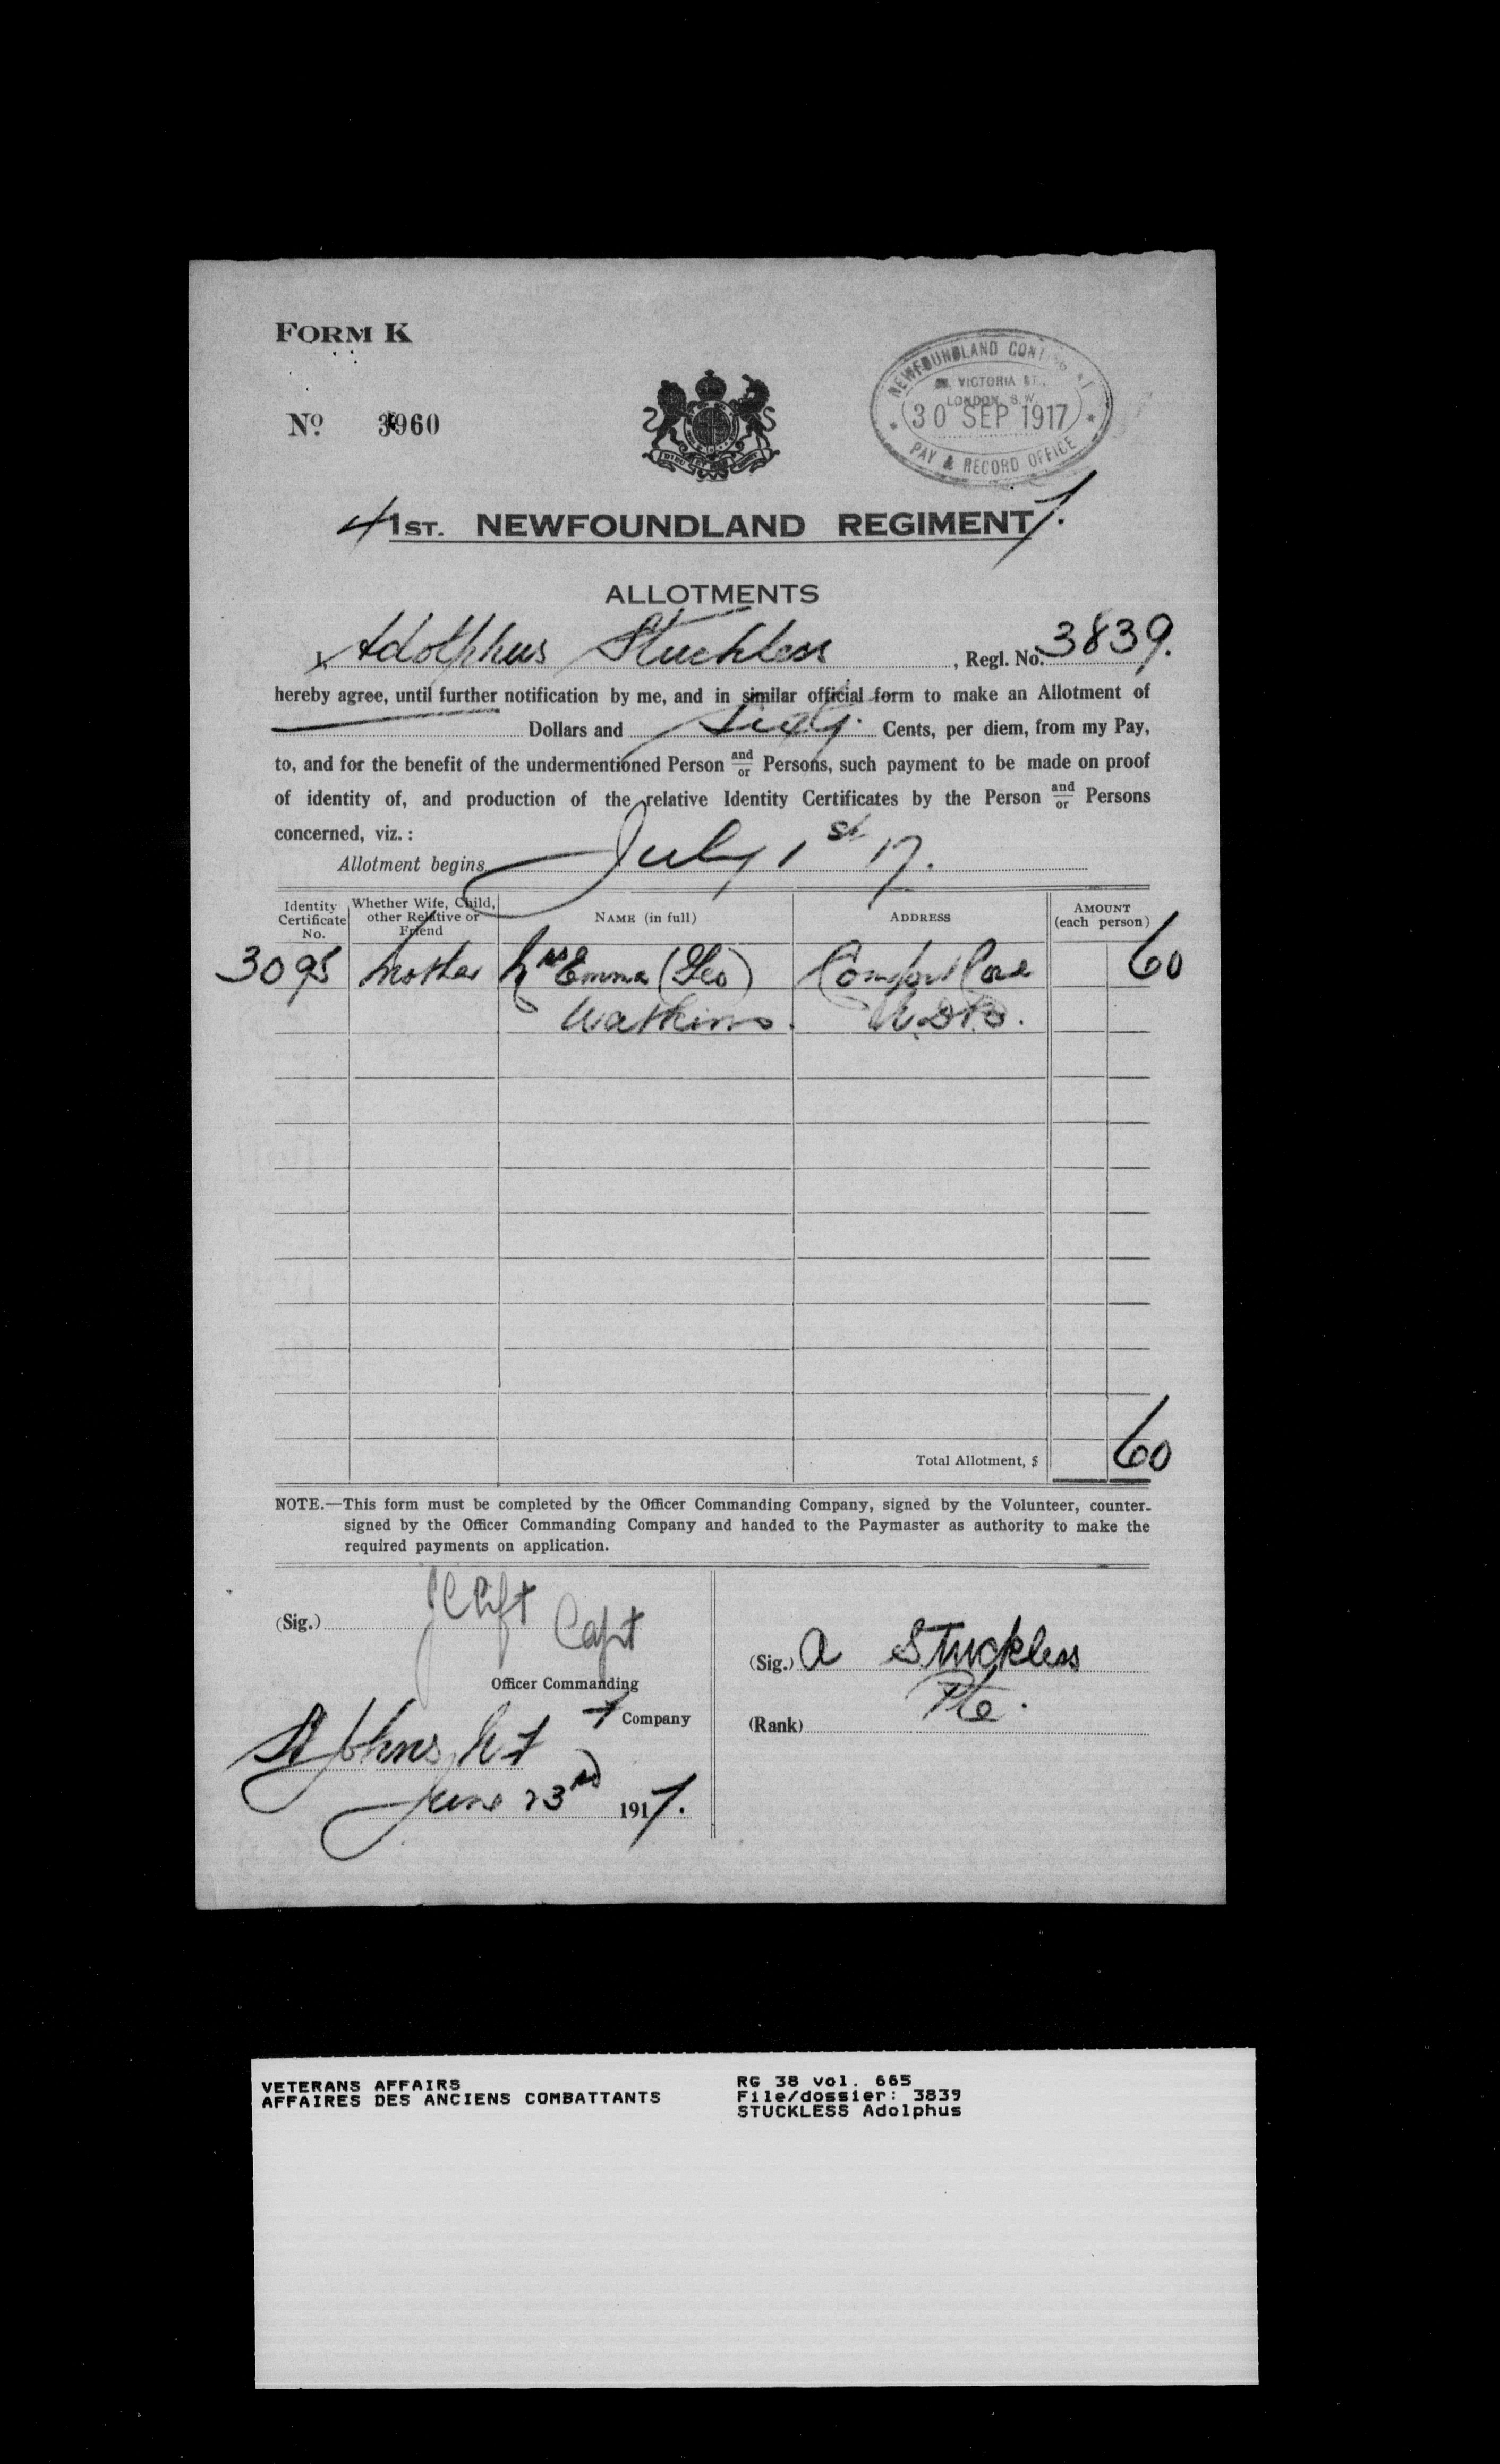 FORM K
No. 3960
NEWFOUNDLAND CONTINGENT
VICTORIA ST.,
LONDON, S.W.
30 SEP 1917
PAY & RECORD OFFICE
1ST. NEWFOUNDLAND REGIMENT
ALLOTMENTS
I, Adolphus Stuckless, Regl. No. 3839.
hereby agree, until further notification by me, and in similar official form to make an Allotment of
Dollars and Sixty Cents, per diem, from my Pay,
to, and for the benefit of the undermentioned Person and/or Persons, such payment to be made on proof
of identity of, and production of the relative Identity Certificates by the Person and/or Persons
concerned, viz.:
Allotment begins July 1st 17.
Identity Certificate No. Whether Wife, Child, other Relative or Friend NAME (in full) ADDRESS AMOUNT (each person)
3095 Mother Mrs Emma (Geo) Comfort Cove 60
Watkins. N.D.B.
Total Allotment, $ 60
NOTE.—This form must be completed by the Officer Commanding Company, signed by the Volunteer, counter-
signed by the Officer Commanding Company and handed to the Paymaster as authority to make the
required payments on application.
(Sig.) J Clift Capt
Officer Commanding
Company
St Johns Nf
June 23rd 1917.
(Sig.) A Stuckless
(Rank) Pte.
VETERANS AFFAIRS
AFFAIRES DES ANCIENS COMBATTANTS
RG 38 vol. 665
File/dossier: 3839
STUCKLESS Adolphus